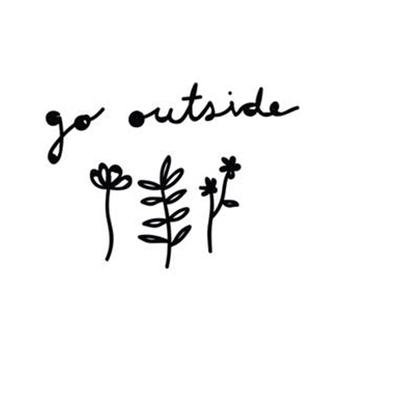 go outside